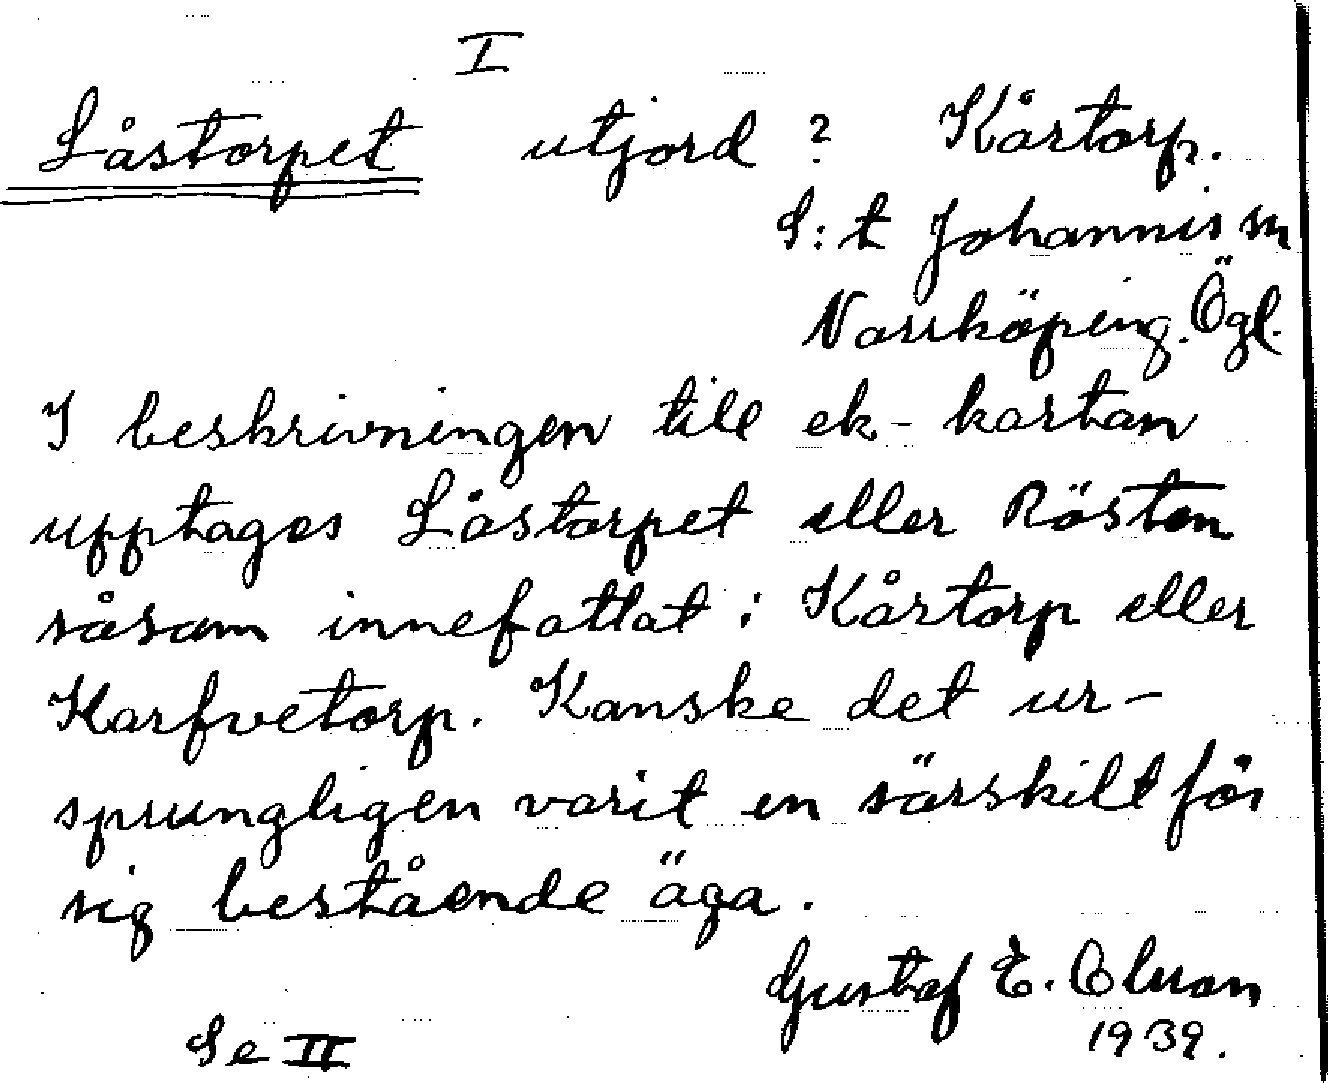 I
Låstorpet utjord? Kårtorp.
S:t Johannis sn
Norrköping. Ögl.
I beskrivningen till ek-kartan
upptages Låstorpet eller Rösten
såsom innefattat i Kårtorp eller
Karfvetorp. Kanske det ur-
sprungligen varit en särskilt för
sig bestående äga.
Gustaf E. Olsson
1939.
Se II